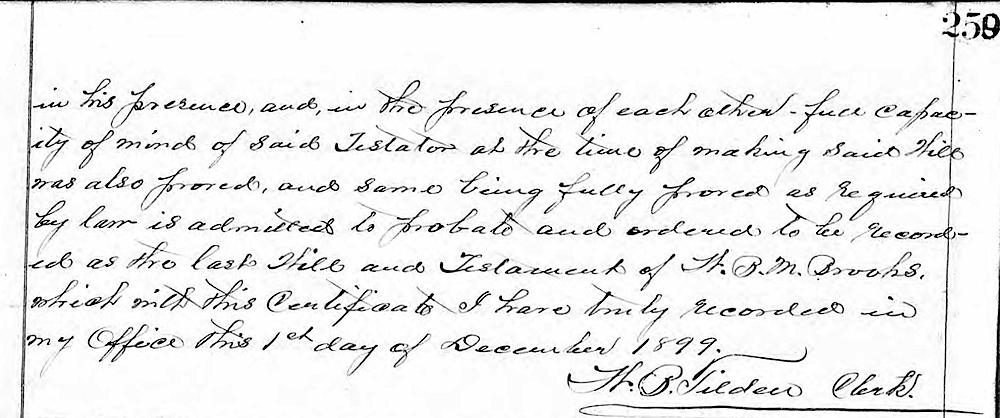 259
in his presence, and, in the presence of each other - full capac-
ity of mind of said Testator at the time of making said Will
was also proved, and same being fully proved as required
by law is admitted to probate and ordered to be record-
ed as the last Will and Testament of H. B. M. Brooks.
which with this Certificate I have truly recorded in
my Office this 1st day of December 1899.
H. B. Tilden Clerk.